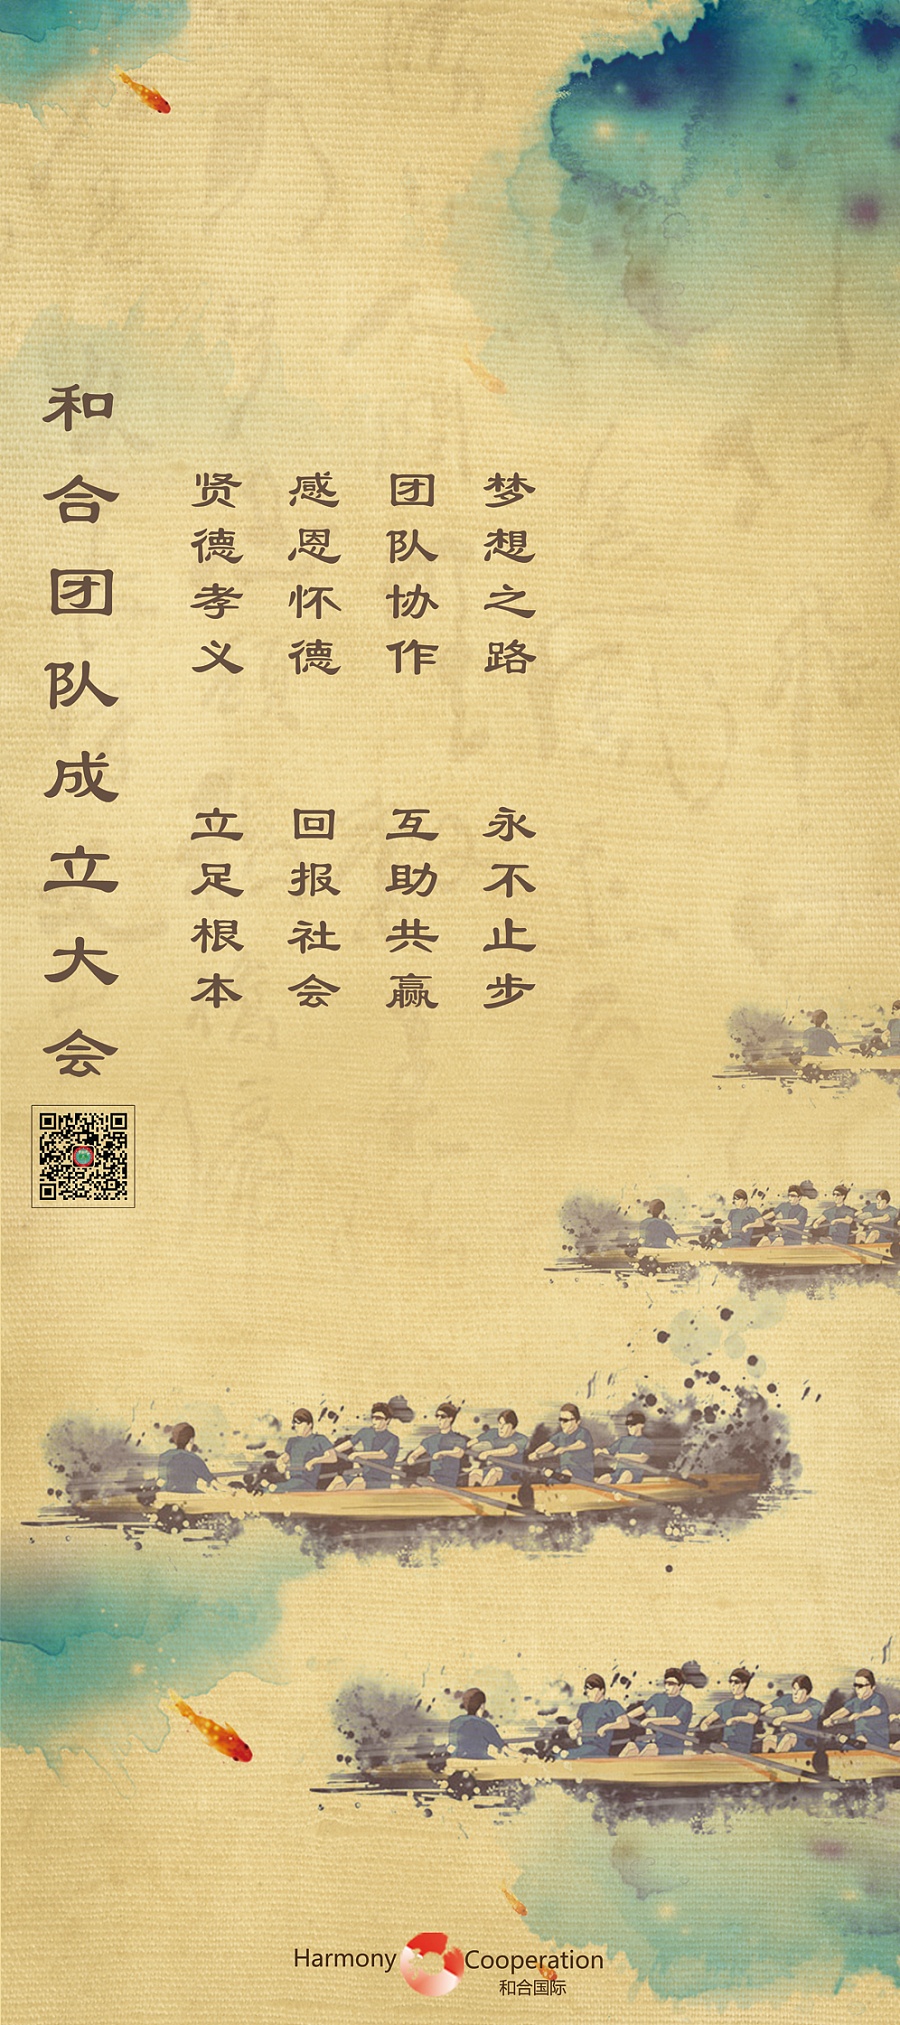 和合团队成立大会
贤德孝义 立足根本
感恩怀德 回报社会
团队协作 互助共赢
梦想之路 永不止步
Harmony Cooperation
和合国际